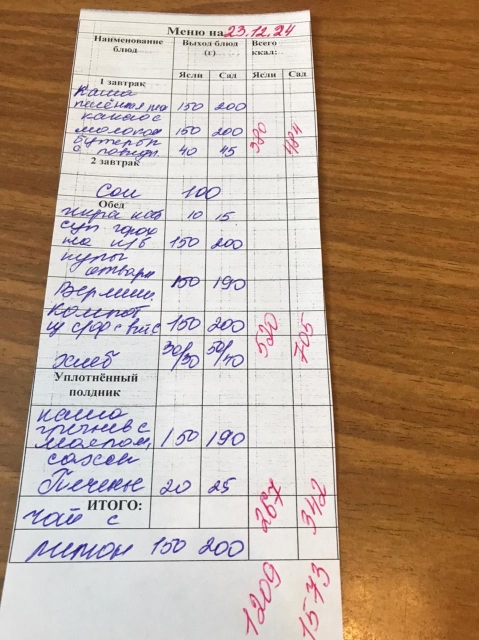 Меню на 23.12.24
Наименование блюд Выход блюд (г) Всего ккал:
Ясли Сад Ясли Сад
1 завтрак
Каша
пшённая на 150 200
какао с
молоком 150 200
бутерб 40 45 380 484
с повидл.
2 завтрак
Сок 100
Обед
икра каб 10 15
суп горох
на к/б 150 200
куры
отварн
Вермиш. 150 190
Компот
из с/ф с вит с 150 200
Хлеб 30/30 50/40 520 705
Уплотнённый полдник
каша
гречнев с
маслом, 150 190
сахом
Печенье 20 25
ИТОГО: 267 342
чай с
лимон 150 200
1209 1573